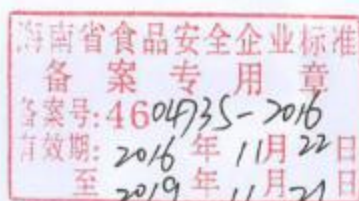 海南省食品安全企业标准
备案专用章
备案号:4604735-2016
有效期:2016年11月22日
至2019年11月21日